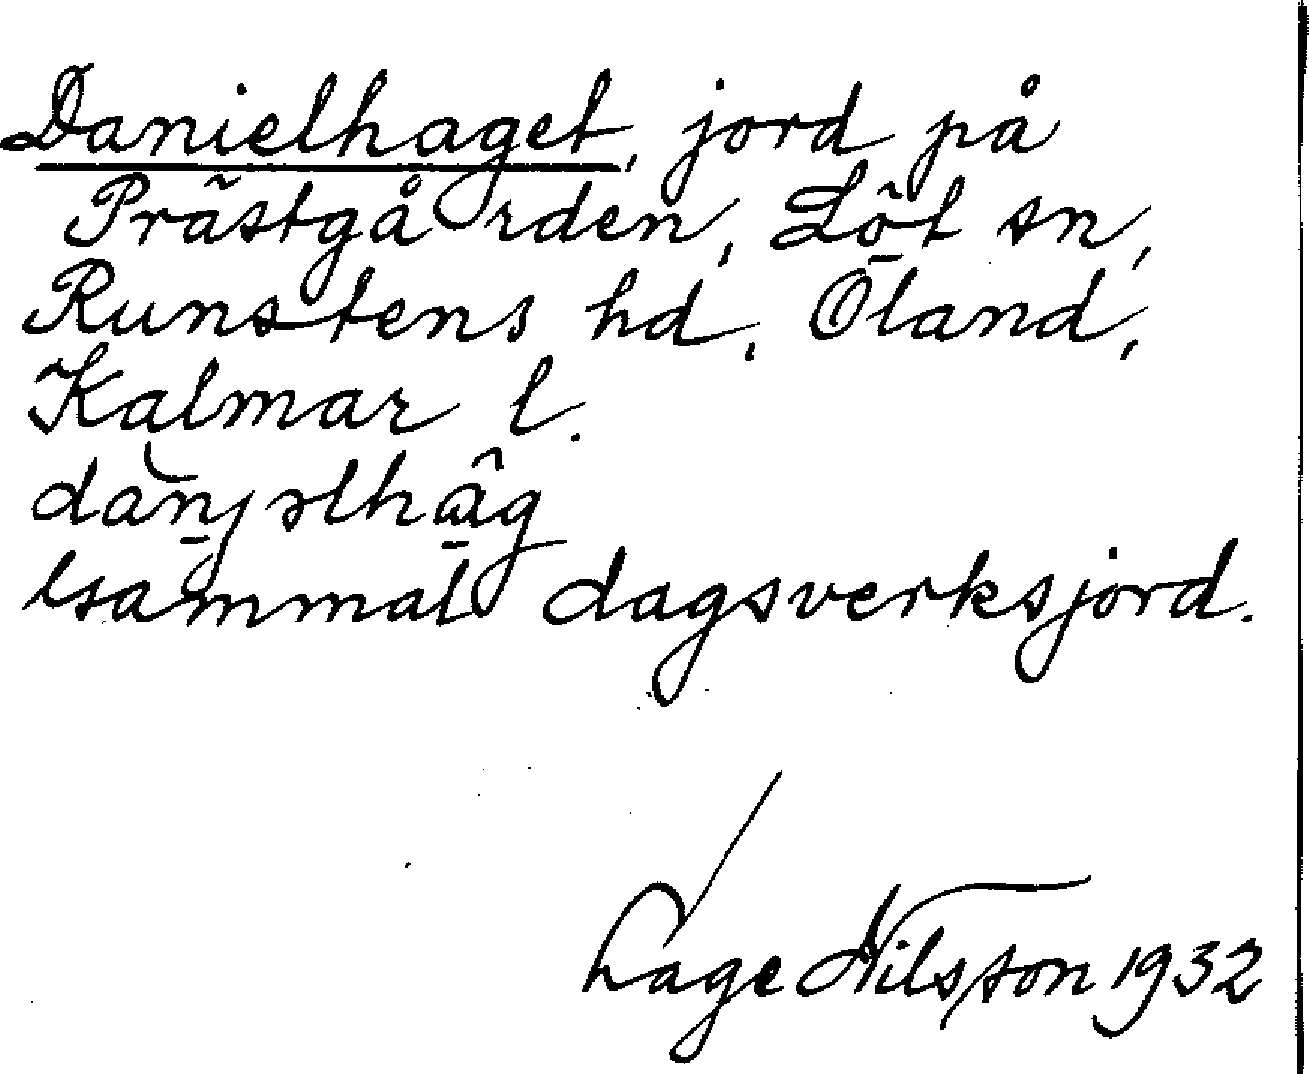 Danielhaget, jord på
Prästgården, Löt sn,
Runstens hd, Öland,
Kalmar l.
gammal dagsverksjord.
Lage Nilsson 1932